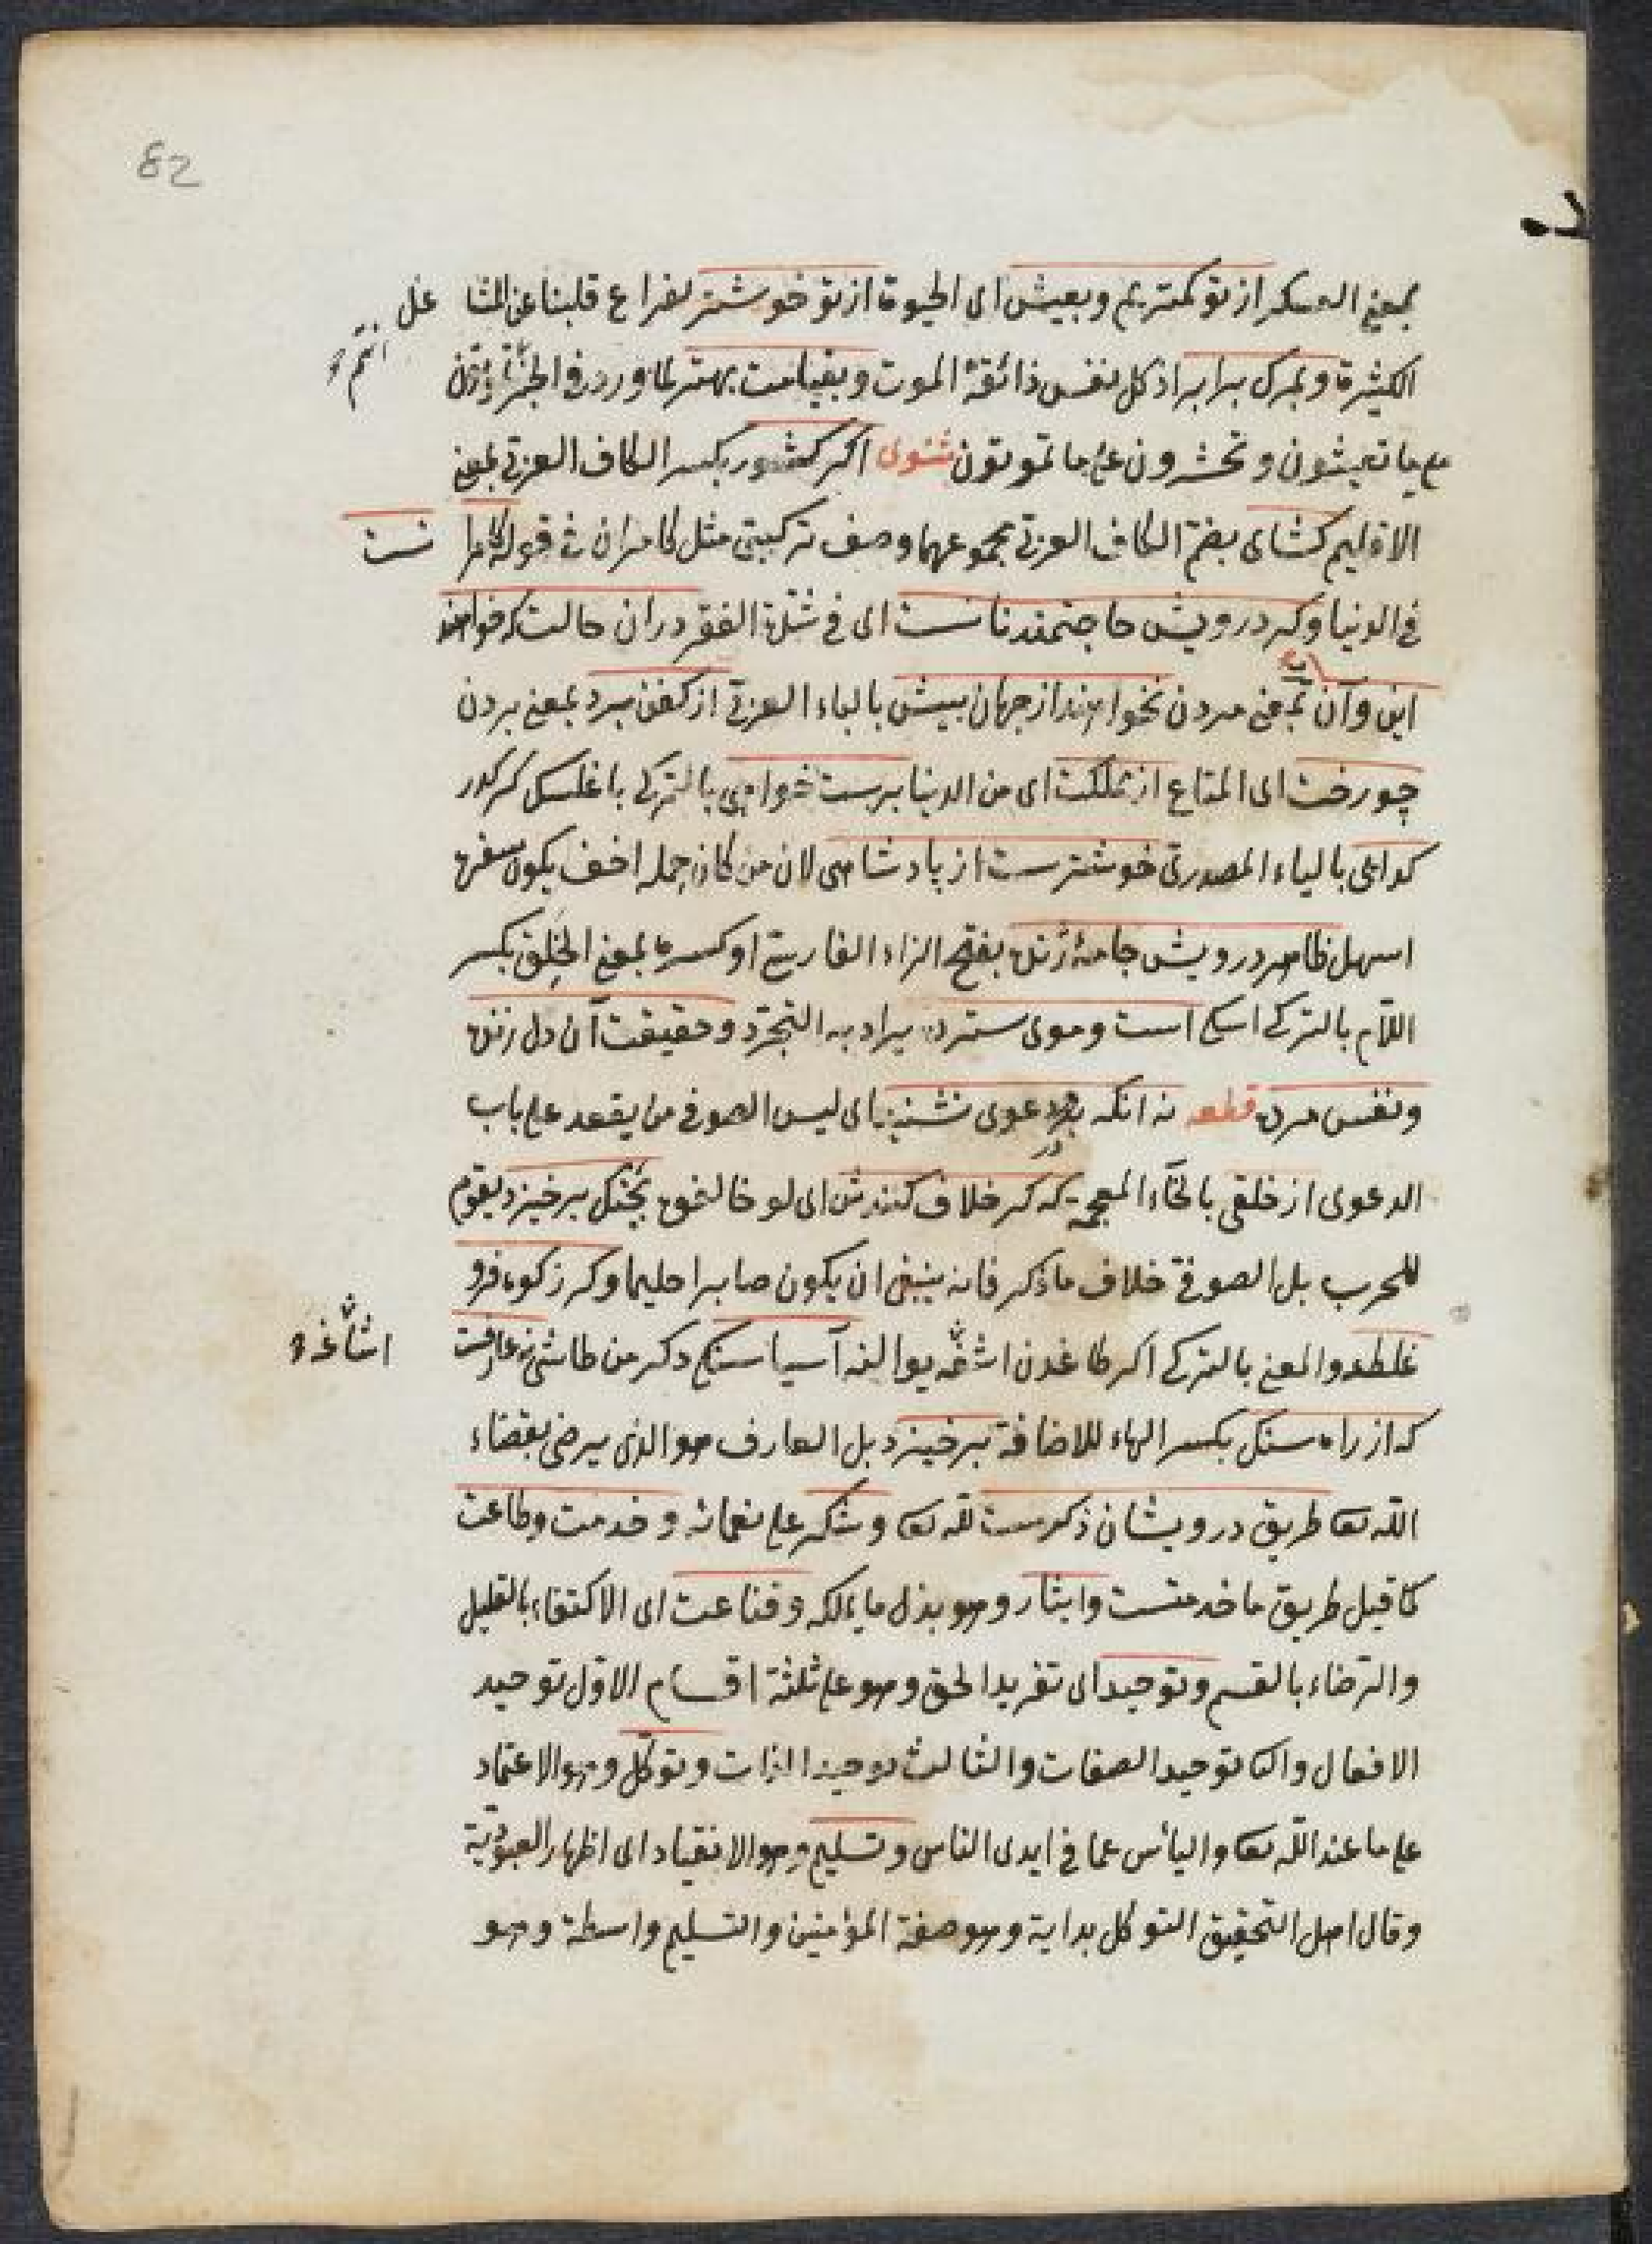 82
بمعنى العسكر از تو كمتريم وبعيش اى الحيوة از تو خوشتر لفراغ قلبنا عن المشاغل
الكثيرة وبمرك برابر اذ كل نفس ذائقة الموت وبقيامت بهتر لما ورد فى الخبر انتم تموتون
على ما تعيشون وتحشرون على ما تموتون مثنوى اكر كشور بكسر الكاف العربى بمعنى
الاقليم كشاى بضم الكاف العربى مجموعهما وصف تركيبى مثل كامران فى قوله كامرانست
فى الدنيا وكر درويش حاجتمند نانست اى فى شدة الفقر دران حالت كه خواهند
اين وآن بمعنى مردن نخواهند از جهان بيش بالباء العربى از كفن برد بمعنى بردن
چو رخت اى المتاع از مملكت اى من الدنيا بربست خواهى بالتركى باغلسك كركدر
كدايى بالياء المصدرى خوشترست از پادشاهى لان من كان حمله اخف يكون سفره
اسهل ظاهر درويش جامه ژنده بفتح الزاء الفارسى او كسرها بمعنى الخلق بكسر
اللام بالتركى اسكى است وموى سترده يراد به التجرد وحقيقت آن دل زنده
ونفس مرده قطعه نه انكه بر در دعوى نشيند اى ليس الصوفى من يقعد على باب
الدعوى از خلقى بالخاء المعجمة كه كر خلاف كنندش اى لو خالفوه بجنك برخيزد يقوم
للحرب بل الصوفى خلاف ما ذكر فانه ينبغى ان يكون صابرا حليما وكر ز كوه فرو
غلطد والمعنى بالتركى اكر طاغدن اشاغه يوالنه آسيا سنكى دكرمن طاشى نه عارفست
اشاغه
كه از راه سنك بكسر الهاء للاضافة برخيزد بل العارف هو الذى يرضى بقضاء
الله تعا طريق درويشان ذكرست لله تعا وشكر على نعمائه وخدمت وطاعت
كما قيل طريق ما خدمتست وايثار وهو بذل ما يملكه وقناعت اى الاكتفاء بالقليل
والرضاء بالقسم وتوحيد اى تفريد الحق وهو على ثلثة اقسام الاول توحيد
الافعال والثا توحيد الصفات والثالث توحيد الذات وتوكل وهو الاعتماد
على ما عند الله تعا واليأس عما فى ايدى الناس وتسليم وهو الانقياد اى اظهار العبودية
وقال اهل التحقيق التوكل بداية وهو صفة المؤمنين والتسليم واسطة وهو